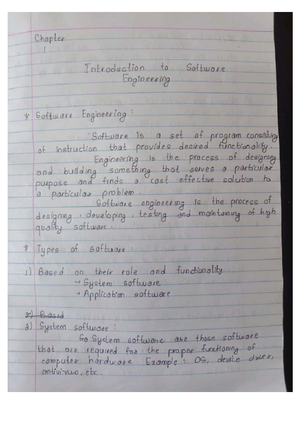 Chapter
1
Introduction to Software
Engineering
* Software Engineering :
Software is a set of program consisting
of instruction that provides desired functionality.
Engineering is the process of designing
and building something that serves a particular
purpose and finds a cost effective solution to
a particular problem.
Software engineering is the process of
designing, developing, testing and maintaining of high
quality software.
* Types of software :
1) Based on their role and functionality
→ System software
→ Application software
2) Based
a) System software :
System software are those software
that are required for the proper functioning of
computer hardware. Example : OS, device driver,
antivirus, etc.